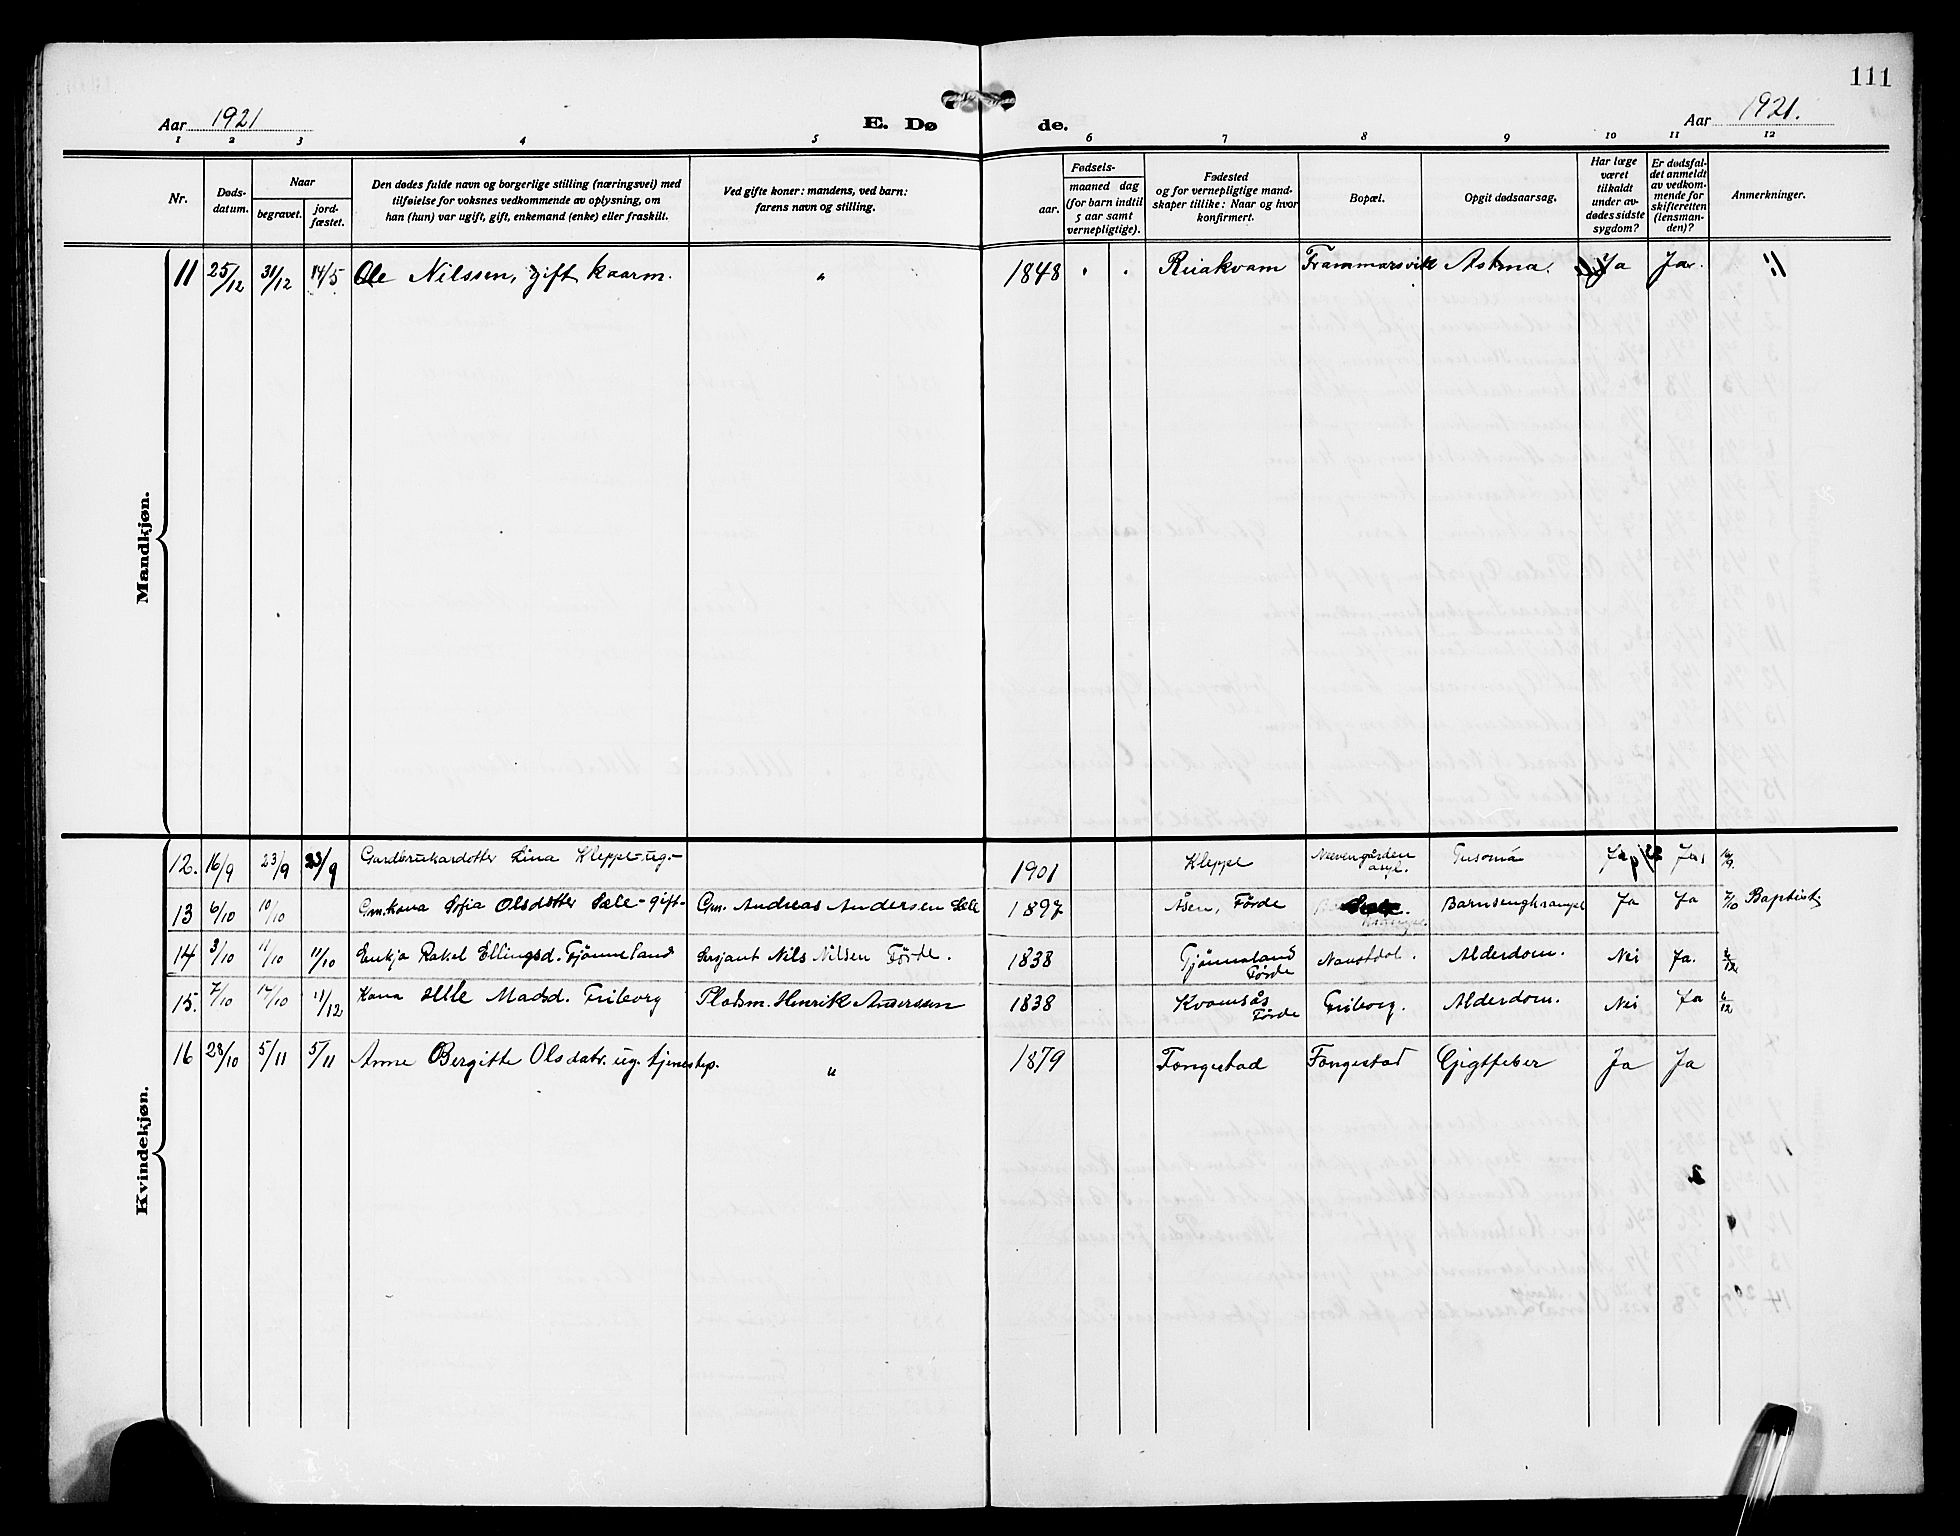 111
Aar 1921
E. Dø
de.
Aar 1921.
1 2 3 4 5 6 7 8 9 10 11 12
Nr.
Døds-
datum.
Naar
begravet.
jord-
fæstet.
Den dødes fulde navn og borgerlige stilling (næringsvei) med
tilføielse for voksnes vedkommende av oplysning, om
han (hun) var ugift, gift, enkemand (enke) eller fraskilt.
Ved gifte koner: mandens, ved barn:
farens navn og stilling.
Fødsels-
aar.
maaned dag
(for barn indtil
5 aar samt
vernepligtige).
Fødested
og for vernepligtige mand-
skaper tillike: Naar og hvor
konfirmert.
Bopæl.
Opgit dødsaarsag.
Har læge
været
tilkaldt
under av-
dødes sidste
sygdom?
Er dødsfal-
det anmeldt
av vedkom-
mende for
skifteretten
(lensman-
den)?
Anmerkninger.
Mandkjøn.
11 25/12 31/12 14/5 Ole Nilssen, gift kaarm. " 1848 Astma. Ja Ja.
Kvindekjøn.
12. 16/9 23/9 23/9 Gardbrukardotter Lina Kleppe-ug.- 1901 Kleppe Neevengården asyl. Ja
13 6/10 10/10 Gm.kona Sofia Olsdotter Sæle-gift- Gm. Andreas Andersen Sæle 1897 Åsen, Förde Ja Ja 7/10 Baptist
14 3/10 11/10 11/10 Enkja Rakel Ellingsd. Tjønneland Sersjant Nils Nilsen Förde. 1838 Tjønneland Förde Naustdal. Alderdom. Nei Ja.
15. 7/10 14/10 11/12 Kona Madsd. Friborg Plasm. Henrik Anderssen 1838 Kvamsås Förde Friborg. Alderdom. Nei Ja
16 28/10 5/11 5/11 Anne Bergitte Olsdatr. ug. tjenestep. " 1879 Fongestad Fongestad Gigtfeber Ja Ja